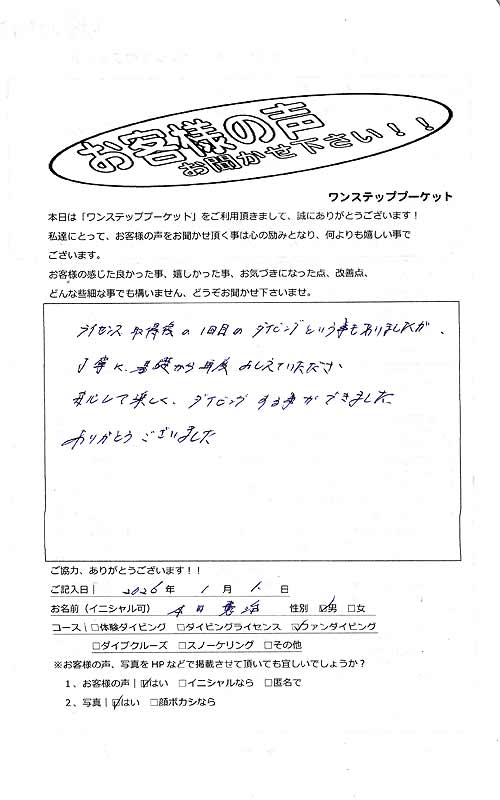 お客様の声
お聞かせ下さい！！
ワンステッププーケット
本日は「ワンステッププーケット」をご利用頂きまして、誠にありがとうございます！
私達にとって、お客様の声をお聞かせ頂く事は心の励みとなり、何よりも嬉しい事で
ございます。
お客様の感じた良かった事、嬉しかった事、お気づきになった点、改善点、
どんな些細な事でも構いません、どうぞお聞かせ下さいませ。
ライセンス取得後の1回目のダイビングという事もありましたが、
丁寧に、基礎から再度おしえていただき
安心して楽しく、ダイビングする事ができました
ありがとうございました
ご協力、ありがとうございます！！
ご記入日｜ 2026年 1月 1日
お名前（イニシャル可） 本田 性別 ☑男 □女
コース｜□体験ダイビング □ダイビングライセンス ☑ファンダイビング
□ダイブクルーズ □スノーケリング □その他
※お客様の声、写真をHPなどで掲載させて頂いても宜しいでしょうか？
1、お客様の声｜☑はい □イニシャルなら □匿名で
2、写真｜☑はい □顔ボカシなら